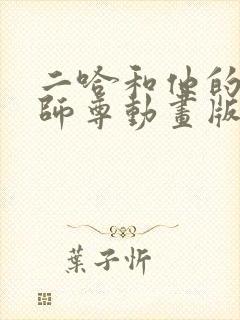 二哈和他的
師尊動畫版
葉子忻